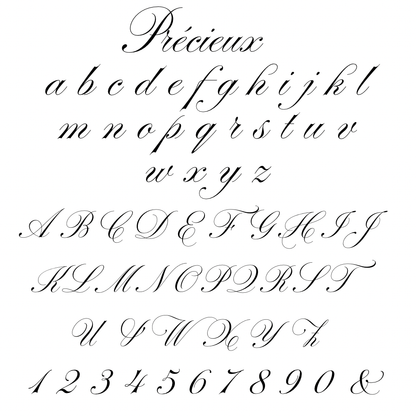 Précieux
a b c d e f g h i j k l
m n o p q r s t u v
w x y z
A B C D E F G H I J
K L M N O P Q R S T
U V W X Y Z
1 2 3 4 5 6 7 8 9 0 &